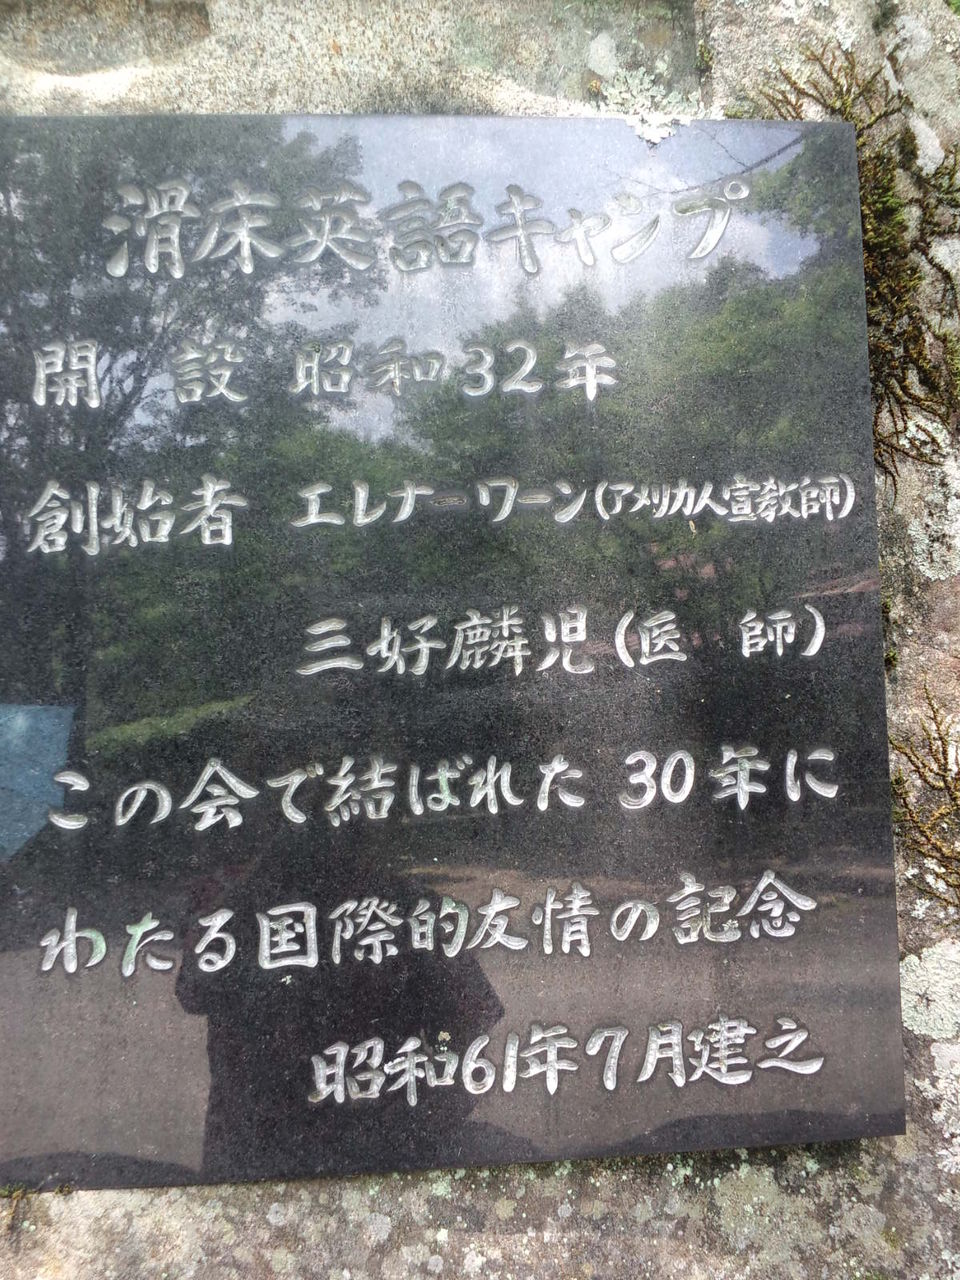 滑床英語キャンプ
開 設 昭和32年
創始者 エレナーワーン(アメリカ人宣教師)
三好麟児(医 師)
この会で結ばれた 30年に
わたる国際的友情の記念
昭和61年7月建之